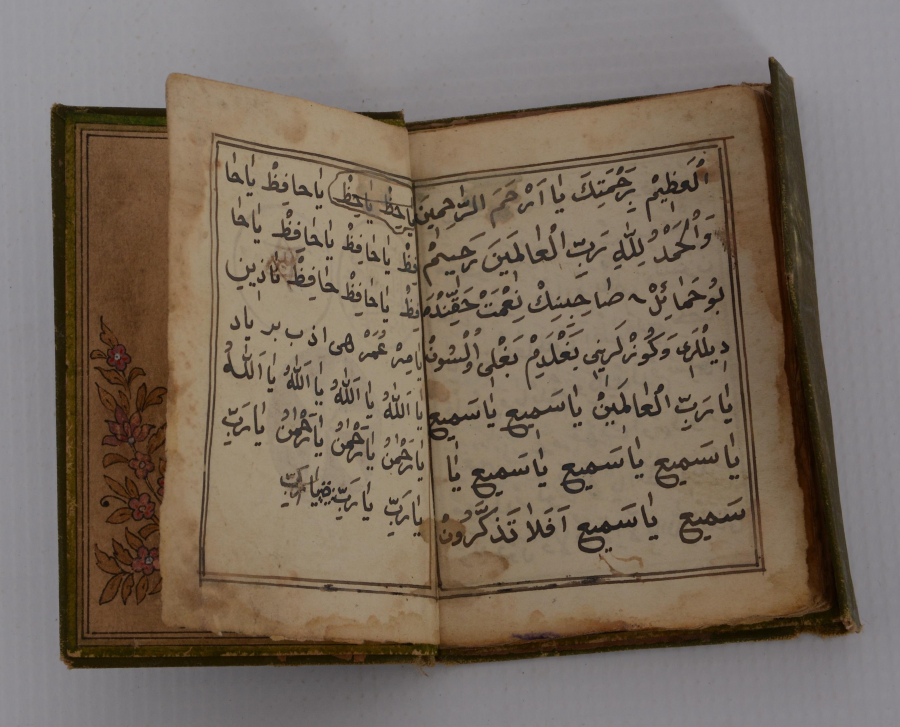 الْعَظِيمْ بِرَحْمَتِكَ يَا اَرْحَمَ الرَّاحِمِينَ
وَالْحَمْدُ لِلّٰهِ رَبِّ الْعَالَمِينَ رَحِيمْ
بُو حَمَائِلْ صَاحِبِنِكْ نِعْمَتْ
دِيلْلَرِى وَكُوزْلَرِينِي بَغْلَدِمْ بَغْلِى اُولْسُونْ
يَارَبِّ الْعَالَمِينْ يَاسَمِيع يَاسَمِيع
يَاسَمِيع يَاسَمِيع يَاسَمِيع يَا
سَمِيع يَاسَمِيع اَفَلَا تَذَكَّرُونْ
يَاحِفِظْ يَاحِفِظْ يَاحَافِظْ يَاحَا
فِظْ يَاحَافِظْ يَاحَافِظْ يَاحَا
فِظْ يَاحَافِظْ حَافِظْ
عُمَرْ هى اذب بر ياد
يَا اَللّٰهُ يَا اَللّٰهُ يَا اَللّٰهُ يَا اَللّٰهُ
يَارَحْمٰنُ يَارَحْمٰنُ يَارَحْمٰنُ يَارَبِّ
يَارَبِّ يَارَبِّ يَارَبِّ